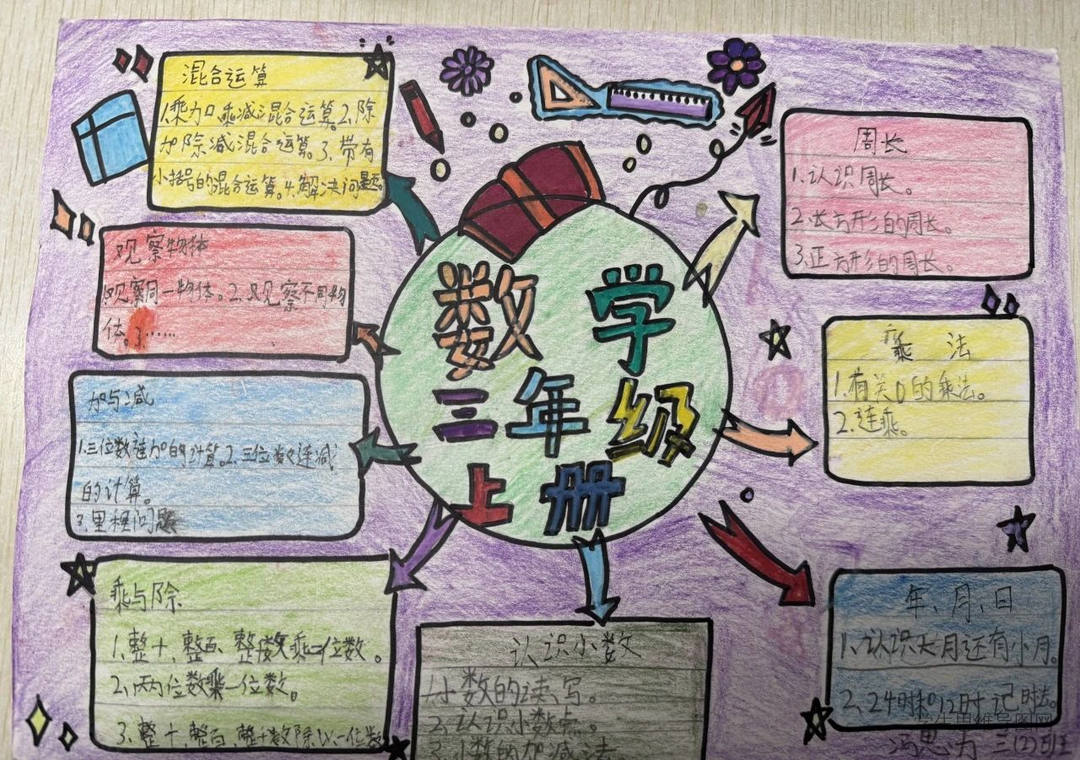 混合运算
1.乘加乘减混合运算。2.除
加除减混合运算。3.带有
小括号的混合运算。4.解决问题。
观察物体
观察同一物体。2.观察不同物
体。3......
加与减
1.三位数连加的计算。2.三位数连减
的计算。
3.里程问题
乘与除
1、整十、整百、整数乘一位数。
2、两位数乘一位数。
3、整十、整百、整十数除以一位数
数学
三年级
上册
认识小数
1.小数的读、写。
2.认识小数点。
3.小数的加减法。
周长
1.认识周长。
2.长方形的周长。
3.正方形的周长。
乘法
1.有关0的乘法。
2.连乘。
年、月、日
1.认识大月还有小月。
2.24时和12时记时法。
三(2)班